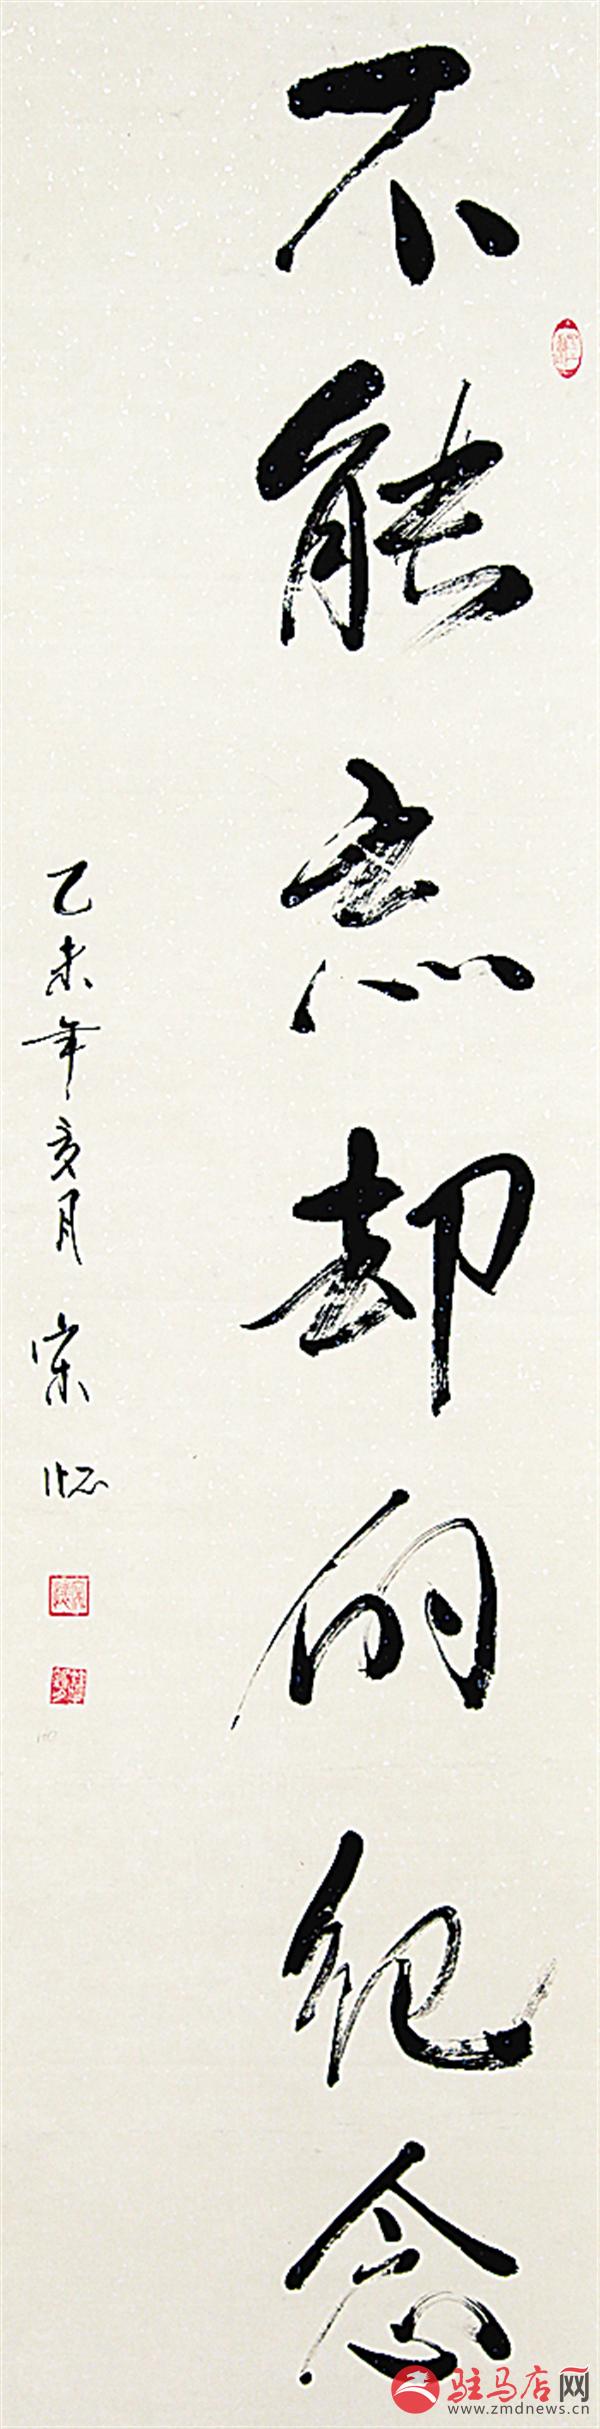 不能忘却的纪念
乙未年亥月 宋
驻马店网
www.zmdnews.cn